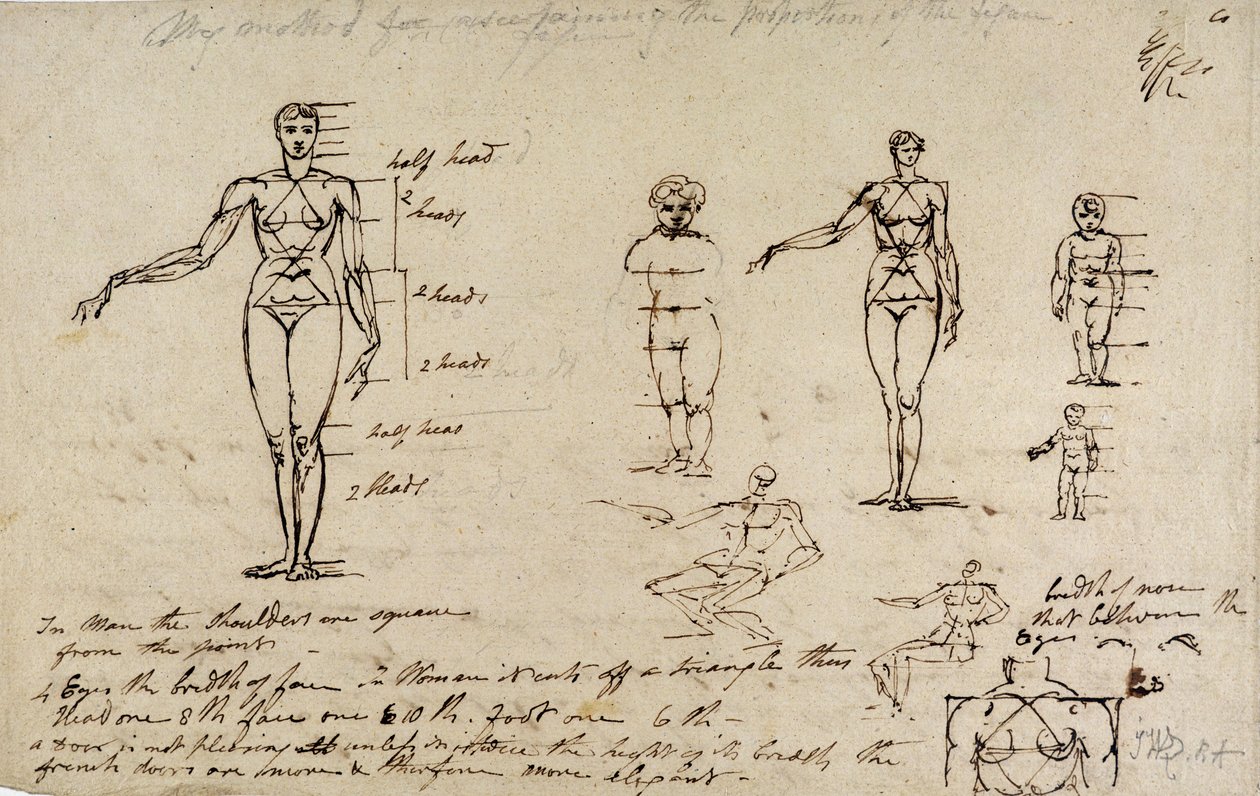 My method for ascertaining the proportions of the figure
half head
2
heads
2 heads
2 heads
half head
2 Heads
In Man the shoulders are square
from the points -
in Woman it cuts off a triangle thus
4 Eyes the bredth of face
Head one 8th face one 10th. foot one 6th -
a Door is not pleasing unless it is twice the height of its bredth the
french doors are more & therefore more elegant -
bredth of nose
that between the
Eyes